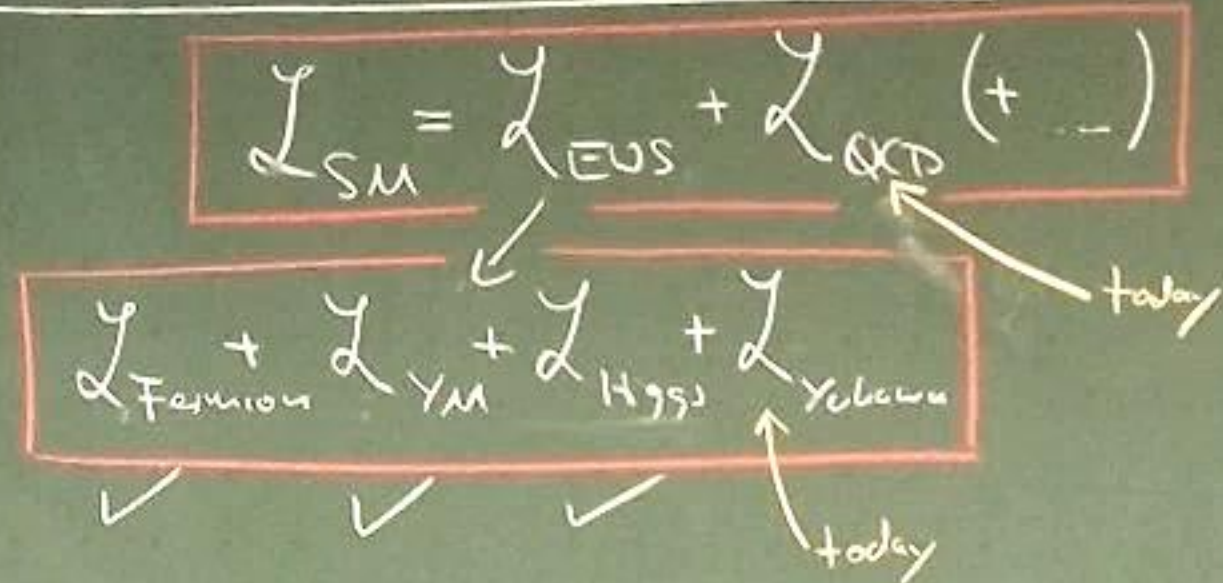 ℒ_SM = ℒ_EWS + ℒ_QCD (+ ...)
today
ℒ_Fermion + ℒ_YM + ℒ_Higgs + ℒ_Yukawa
✓ ✓ ✓
today